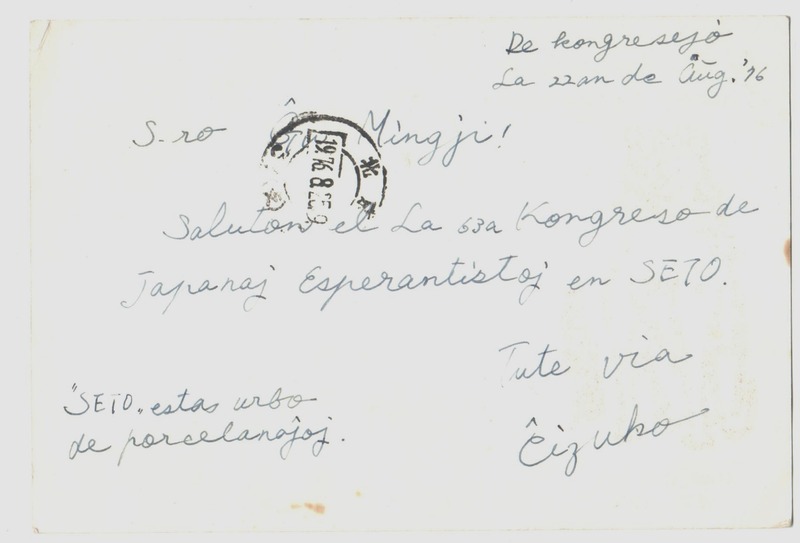 De kongresejo
La 22an de Aŭg. '76
S-ro Mingji!
1976.8.25.
北
Saluton el La 63a Kongreso de
Japanaj Esperantistoj en SETO.
Tute via
Ĉizuko
"SETO" estas urbo
de porcelanaĵoj.